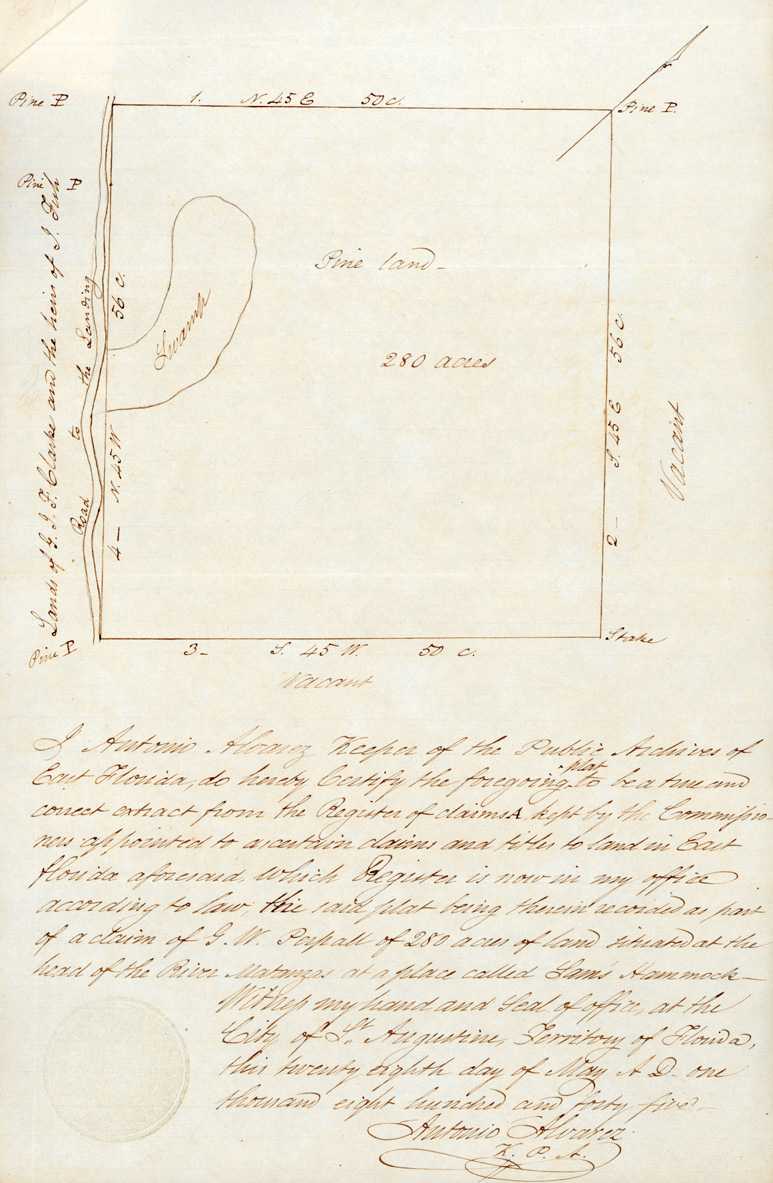 Pine P 1. N. 45 E 50 c. Pine P.
Pine P
Lands of G. J. F. Clarke and the heirs of J. Fish
Road to the Landing
4 — N. 45 W 56 c.
Swamp
Pine land —
280 acres
2 — S. 45 E 56 c.
Vacant
Pine P 3 - S. 45 W. 50 c. Stake
Vacant
I Antonio Alvarez Keeper of the Public Archives of
East Florida, do hereby Certify the foregoing plat to be a true and
correct extract from the Register of claims A, kept by the Commissio-
ners appointed to ascertain claims and titles to land in East
florida aforesaid, which Register is now in my office
according to law, the said plat being therein recorded as part
of a claim of G. W. Perpall of 280 acres of land situated at the
head of the River Matanzas at a place called Sam's Hammock —
Witness my hand and Seal of office, at the
City of St. Augustine, Territory of Florida,
this twenty eighth day of May A. D. one
thousand eight hundred and forty five —
Antonio Alvarez
K. P. A.